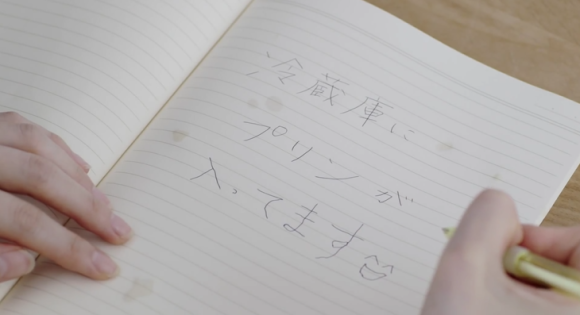 冷蔵庫に
プリンが
入ってます